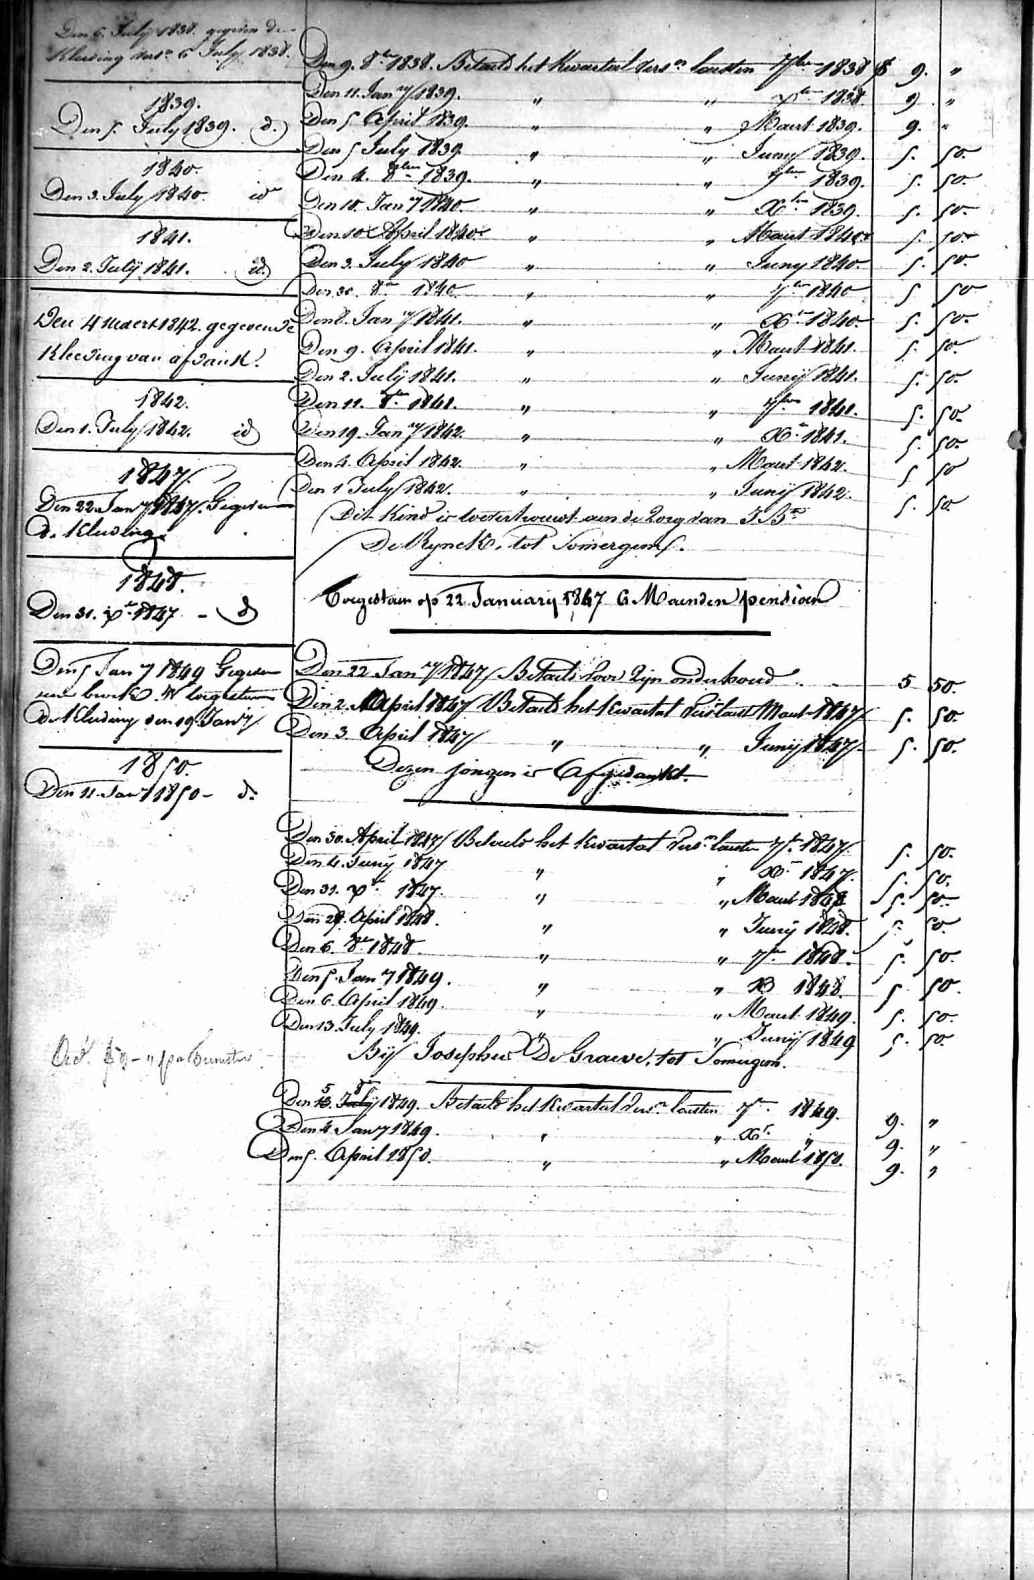 Den 6. July 1838. gegeven de
Kleeding vers.n 6 July 1838.
1839.
Den 5. July 1839. d.
1840.
Den 3. July 1840. id
1841.
Den 2. July 1841. id
Den 4 Maert 1842. gegeven de
Kleeding van afdank.
1842.
Den 1. July 1842. id
1847.
Den 22 Jan.y 1847. Gegeven
de Kleeding.
1848.
Den 31. x.br 1847 - d
Den 5 Jan.y 1849 Gegeven
een broek.
de Kleeding den 19 Jan.y
1850.
Den 11. Jan.y 1850 - d.
Den 9. 8.br 1838. Betaeld het Kwartael vers.n laesten 7.ber 1838 f 9. "
Den 11. Jan.y 1839. " " x.br 1838. 9. "
Den 5 April 1839. " " Maert 1839. 9. "
Den 5 July 1839. " " Juny 1839. 5. 50.
Den 4. 8.ber 1839. " " 7.ber 1839. 5. 50.
Den 10. Jan.y 1840. " " X.br 1839. 5. 50.
Den 10 April 1840. " " Maert 1840. 5. 50.
Den 3. July 1840 " " Juny 1840. 5. 50.
Den 30. 8.br 1840. " " 7.ber 1840 5 50
Den 8. Jan.y 1841. " " X.br 1840. 5. 50.
Den 9. April 1841. " " Maert 1841. 5. 50.
Den 2. July 1841. " " Junij 1841. 5. 50.
Den 11. 8.br 1841. " " 7.ber 1841. 5. 50.
Den 19. Jan.y 1842. " " X.br 1841. 5. 50.
Den 4. April 1842. " " Maert 1842. 5 50
Den 1 July 1842. " " Junij 1842. 5. 50.
Dit Kind is toevertrouwt aen de Zorg van J. B.te
De Rynck, tot Somergem.
Toegestaen op 22 January 1847 6 Maenden pensioen
Den 22 Jan.y 1847 Betaeld voor Zijn onderhoud 5 50.
Den 2. April 1847 Betaeld het Kwartael vers laest Maert 1847 5. 50.
Den 3. April 1847 " " Junij 1847. 5. 50.
Dezen jongen is Afgedankt.
Den 30. April 1847 Betaeld het Kwartael vers.n laesten 7.br 1847. 5. 50.
Den 4. Junij 1847 " " X.br 1847. 5. 50.
Den 31. x.br 1847. " " Maert 1848 5. 50.
Den 29. April 1848. " " Junij 1848. 5. 50.
Den 6. 8.br 1848. " " 7.br 1848. 5. 50.
Den 5. Jan.y 1849. " " X 1848. 5 50.
Den 6. April 1849. " " Maert 1849. 5. 50.
Den 13. July 1849. " " Junij 1849 5. 50.
Bij Josephus De Graeve, tot Somergem.
Den 5 8.br 1849. Betaeld het Kwartael vers.n laesten 7.br 1849. 9. "
Den 4. Jan.y 1849. " " X.br " 9. "
Den 5. April 1850. " " Maert 1850. 9. "